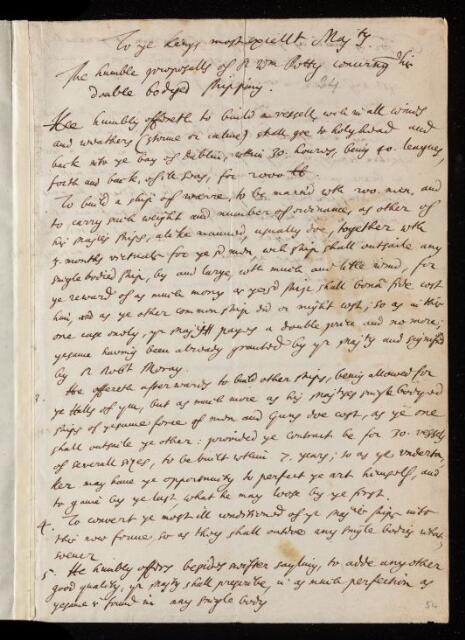 To ye Kings most excellt Majty.
The humble proposalls of Sr Wm Petty concerning his
double bodyed shipping.
Hee humbly offereth to build a vessell, wch in all winds
and weathers (storme or calme) shall goe to holyhead and
back into ye bay of Dublin, within 30. houres, being 40. leagues,
forth and back,
To build a ship of warre, to be man'd wth 200. men, and
to carry such weight and number of ordinance, as other of
his Majties ships, alike manned, usually doe, together wth
months victuals for ye sd men wch ship shall outsaile any
single bodied ship, by and large, with much and litle wind, for
ye reward of as much money as yesd ship shall bona fide cost
him, and as ye other common ship did or might cost; so as in this
one case onely, yr Majtie payes a double price and no more;
yesame having been already granted by yr Majty and signified
by Sr Robt Moray.
3. He offereth afterwards to build other ships, being allowed for
ye Hulls of ym, but as much more as his Majties single bodyed
ships of yesame force of men and Guns doe cost, as ye one
shall outsaile ye other: provided ye contract be for 30. vessels
of severall sizes, to be built within 7. years; so as ye underta-
ker may have ye opportunity to perfect ye art himself, and
to gaine by ye last, what he may loose by ye first.
4. To convert ye most ill conditioned of ye Majties ships into
this new forme so as they shall outdoe any single bodies what-
soever
5. He humbly offers besides swifter sayling, to adde any other
good quality, yr Majty shall prescribe, in as much perfection as
yesame is found in any single body
54